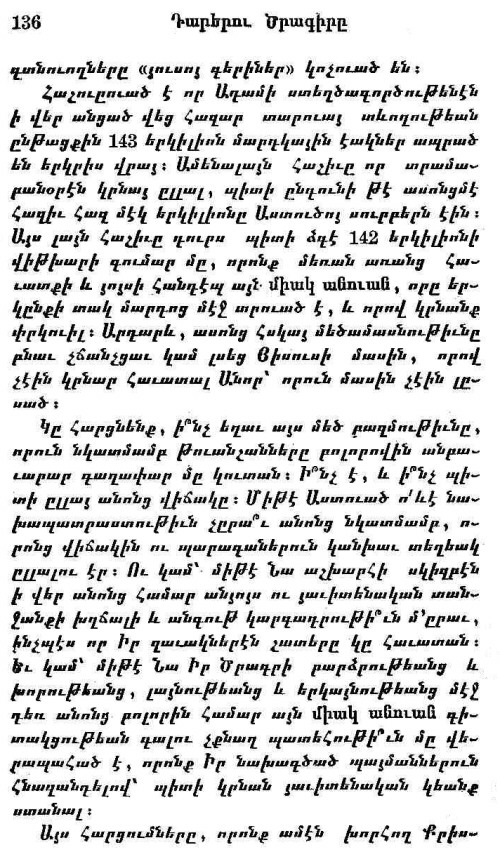 136 Դարերու Ծրագիրը
գտնուողները «յուսոյ գերիներ» կոչուած են։
Հաշուըուած է որ Ադամի ստեղծագործութենէն
ի վեր անցած վեց հազար տարուայ տևողութեան
ընթացքին 143 երկիլիոն մարդկային էակներ ապրած
են երկրիս վրայ։ Ամենալայն հաշիւը որ տրամա-
բանօրէն կրնայ ըլլալ, պիտի ընդունի թէ ասոնցմէ
հազիւ հազ մէկ երկիլիոնը Աստուծոյ սուրբերն էին։
Այս լայն հաշիւը դուրս պիտի ձգէ 142 երկիլիոնի
վիթխարի գումար մը, որոնք մեռան առանց հա-
ւատքի և յոյսի հանդէպ այն միակ անուան, որը եր-
կընքի տակ մարդոց մէջ տրուած է, և որով կրնանք
փրկուիլ։ Արդարև, ասոնց հսկայ մեծամասնութիւնը
բնաւ չճանչցաւ կամ լսեց Յիսուսի մասին, որով
չէին կրնար հաւատալ Անոր՝ որուն մասին չէին լը-
սած։
Կը հարցնենք, ի՞նչ եղաւ այս մեծ բազմութիւնը,
որուն նկատմամբ թուանշանները բոլորովին անբա-
ւարար գաղափար մը կուտան։ Ի՞նչ է, և ի՞նչ պի-
տի ըլլայ անոնց վիճակը։ Միթէ Աստուած ո՛ևէ նա-
խապատրաստութիւն չըրա՞ւ անոնց նկատմամբ, ո-
րոնց վիճակին ու պարագաներուն կանխաւ տեղեակ
ըլլալու էր։ Ու կամ՝ միթէ Նա աշխարհի սկիզբէն
ի վեր անոնց համար անյոյս ու յաւիտենական տան-
ջանքի խղճալի և անգութ կարգադրութի՞ւն մ՚ըրաւ,
ինչպէս որ Իր զաւակներէն շատերը կը հաւատան։
Եւ կամ՝ միթէ Նա Իր Ծրագրի բարձրութեանց և
խորութեանց, լայնութեանց և երկայնութեանց մէջ
դեռ անոնց բոլորին համար այն միակ անուան գի-
տակցութեան գալու չքնաղ պատեհութի՞ւն մը վե-
րապահած է, որոնք Իր նախագծած պայմաններուն
հնազանդելով՝ պիտի կրնան յաւիտենական կեանք
ստանալ։
Այս հարցումները, որոնք ամէն խորհող Քրիս-